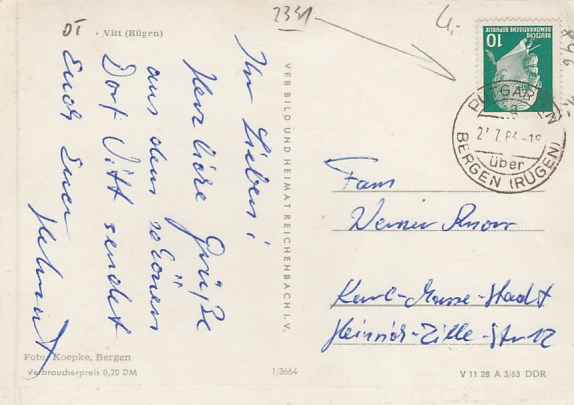 2331
4.-
DT
Vitt (Rügen)
Ihr Lieben!
Herzliche Grüße
aus dem schönen
Dorf Vitt sendet
Euch Euer
Helmut
Foto: Koepke, Bergen
Verbraucherpreis 0,20 DM
VEB BILD UND HEIMAT REICHENBACH I. V.
1/3664
10
DEUTSCHE
DEMOKRATISCHE REPUBLIK
PUTGARTEN
a
7.64-18
über
BERGEN (RÜGEN)
Fam
Werner Knorr
Karl-Marx-Stadt
Heinrich-Zille-Str 12
V 11 28 A 3/63 DDR